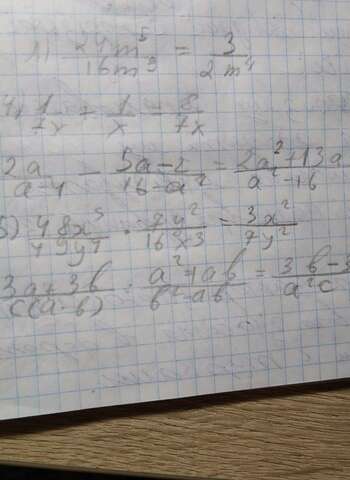 1) 24m^5/16m^9 = 3/2m^4
4) 1/7x + 1/x = 8/7x
2a/a-4 - 5a-2/16-a^2 = 2a^2+13a/a^2-16
5) 48x^5/49y^4 · 7y^2/16x^3 = 3x^2/7y^2
3a+3b/c(a-b) : a^2+ab/b^2-ab = 3b-3/a^2c